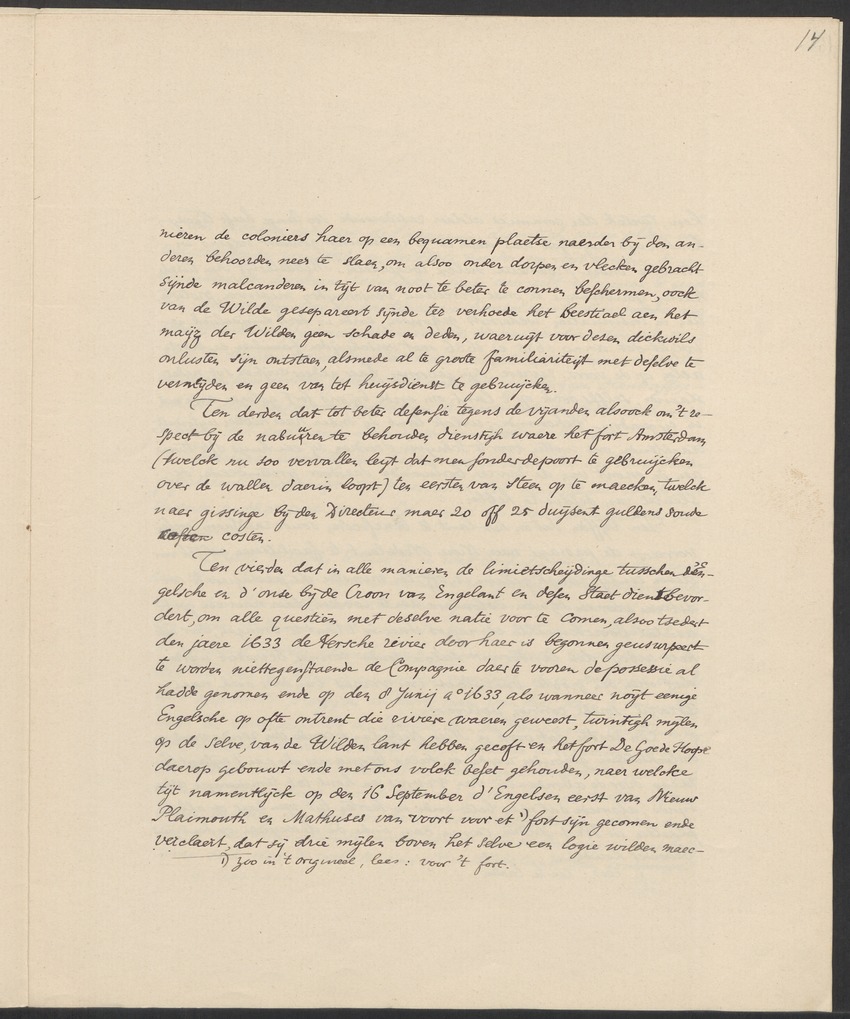 14
nieren de coloniers haer op een bequamen plaetse naerder bij den an-
deren behoorden neer te slaen, om alsoo onder dorpen en vlecken gebracht
sijnde malcanderen in tijt van noot te beter te connen beschermen, oock
van de Wilde gesepareert sijnde ter verhoede het beestiael aen het
maijz der Wilden geen schade en deden, waeruijt voor desen dickwils
onlusten sijn ontstaen, alsmede al te groote familiariteijt met deselve te
vermijden en geen van tot huijsdienst te gebruijcken.
Ten derden dat tot beter defensie tegens de vijanden alsoock om 't re-
spect bij de nabuüren te behouden dienstigh waere het fort Amsterdam
(twelck nu soo vervallen leijt dat men sonder de poort te gebruijcken
over de wallen daerin loopt) ten eersten van steen op te maecken, twelck
naer gissinge bij den Directeur maer 20 off 25 duijsent guldens soude
costen.
Ten vierden dat in alle manieren de limietscheijdinge tusschen d'En-
gelsche en d'onse bij de Croon van Engelant en desen Staet dient bevor-
dert, om alle questiën met deselve natië voor te comen, alsoo tsedert
den jaere 1633 de Versche rivier door haer is begonnen geusurpeert
te worden niettegenstaende de Compagnie daer te vooren de possessie al
hadde genomen ende op den 8 Junij aº 1633, als wanneer noijt eenige
Engelsche op ofte ontrent die riviere waeren geweest, twintigh mijlen
op de selve, van de Wilden lant hebben gecoft en het fort De Goede Hoope
daerop gebouwt ende met ons volck beset gehouden, naer welcke
tijt namentlijck op den 16 September d'Engelsen eerst van Nieuw
Plaimouth en Mathuses van voort voor et ¹) fort sijn gecomen ende
verclaert, dat sij drie mijlen boven het selve een logie wilden maec-
¹) zoo in 't origineel, lees: voor 't fort.